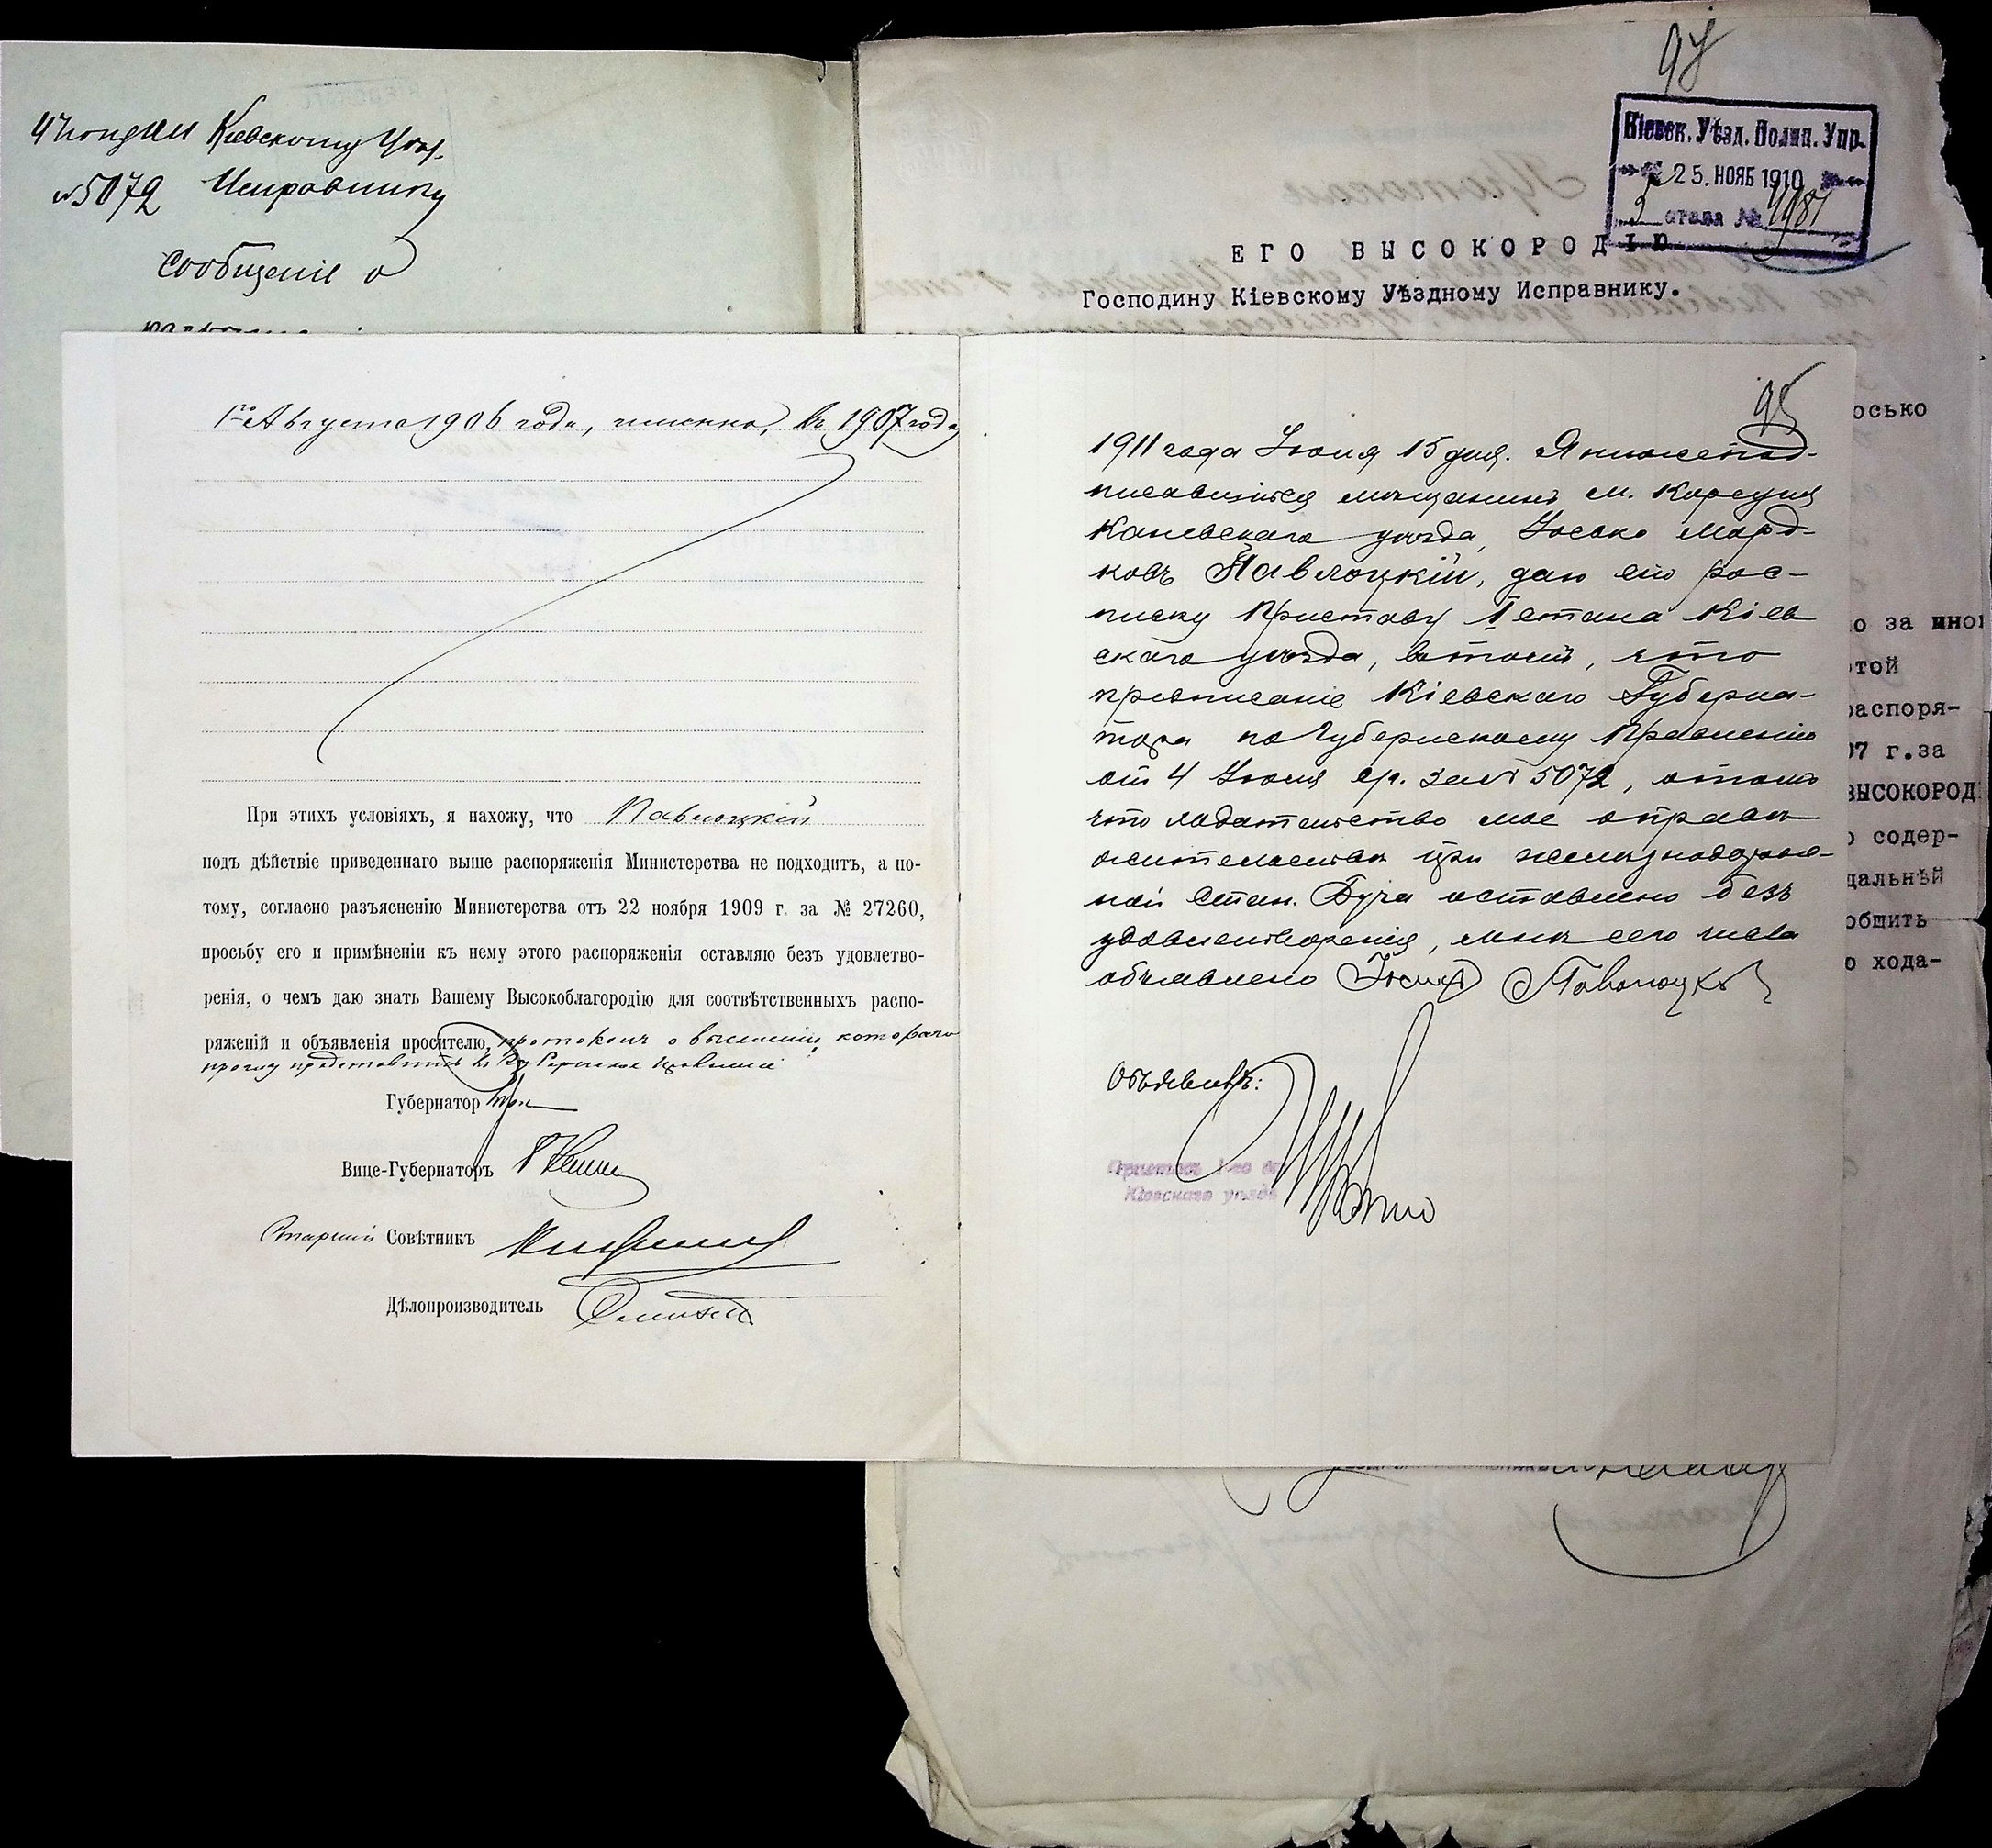 4 Іюня 1911 Кіевскому Уѣзд.
№ 5072 Исправнику
Сообщеніе о
97
Кіевск. Уѣзд. Полиц. Упр.
25. НОЯБ 1910
стола №
ЕГО ВЫСОКОРОДІЮ
Господину Кіевскому Уѣздному Исправнику.
осько
о за мной
этой
распоря-
07 г.за
ВЫСОКОРОД
о содер-
дальнѣй
общить
о хода-
1го Августа 1906 года, именно, въ 1907 году
При этихъ условіяхъ, я нахожу, что Павлоцкій
подъ дѣйствіе приведеннаго выше распоряженія Министерства не подходитъ, а по-
тому, согласно разъясненію Министерства отъ 22 ноября 1909 г. за № 27260,
просьбу его и примѣненіи къ нему этого распоряженія оставляю безъ удовлетво-
ренія, о чемъ даю знать Вашему Высокоблагородію для соотвѣтственныхъ распо-
ряженій и объявленія просителю, протоколъ о выселеніи котораго
прошу представить въ Губернское Правленіе
Губернатор
Вице-Губернаторъ
Старшій Совѣтникъ
Дѣлопроизводитель
95
1911 года Іюля 15 дня. Я нижепод-
писавшійся мѣщанинъ м. Корсуня
Каневскаго уѣзда, Іосько Морд-
ковъ Павлоцкій, даю сію рос-
писку Приставу 1 стана Кіев
скаго уѣзда, въ томъ, что
предписаніе Кіевскаго Губерна-
тора по Губернскому Правленію
отъ 4 Іюня с/г. за № 5072, о томъ
что ходатайство мое о правѣ
жительства при желѣзнодорож-
ной стан. Буча оставлено безъ
удовлетворенія, мнѣ сего числа
объявлено Іосифъ Павлоцкій
Объявилъ:
Приставъ 1-го
Кіевскаго уѣзда